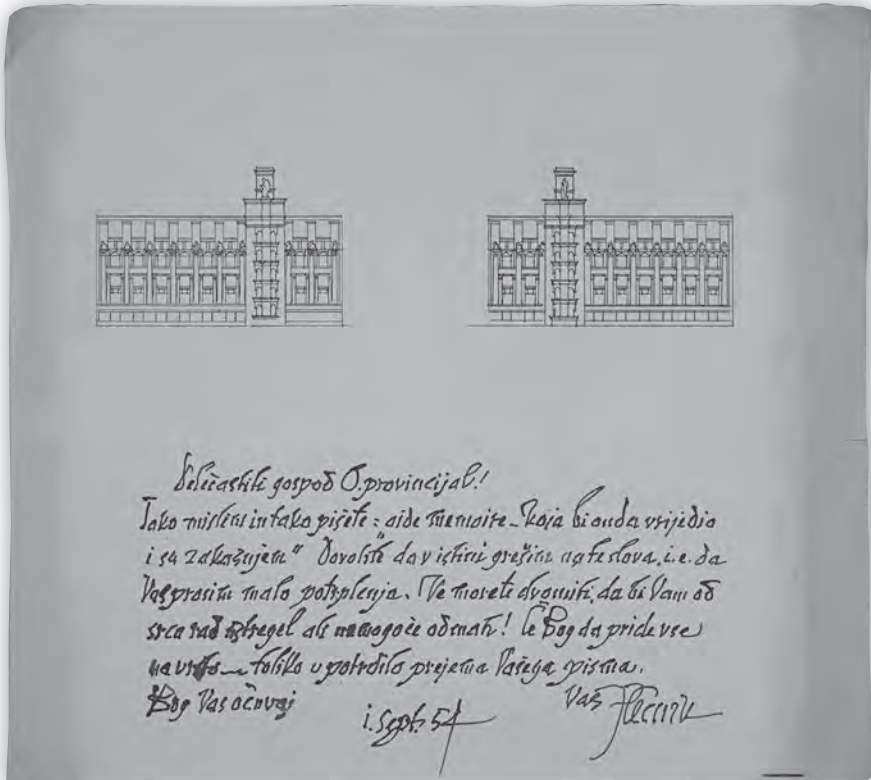 Velečastiti gospod O. provincijal!
Tako mislim in tako pišete: aide memoire – koja bi onda vrijedio
i sa zakašnjem" Dovolite da v istini grešim na te slova, i.e. da
Vas prosim malo potrplenja. Ne morete dvomiti, da bi Vam od
srca rad ustregel ali nemogoče odmah! Le Bog da pride vse
na – toliko u potrdilo prejema Vašega pisma.
Bog Vas očuvaj
1. Sept. 54
Vaš Plečnik